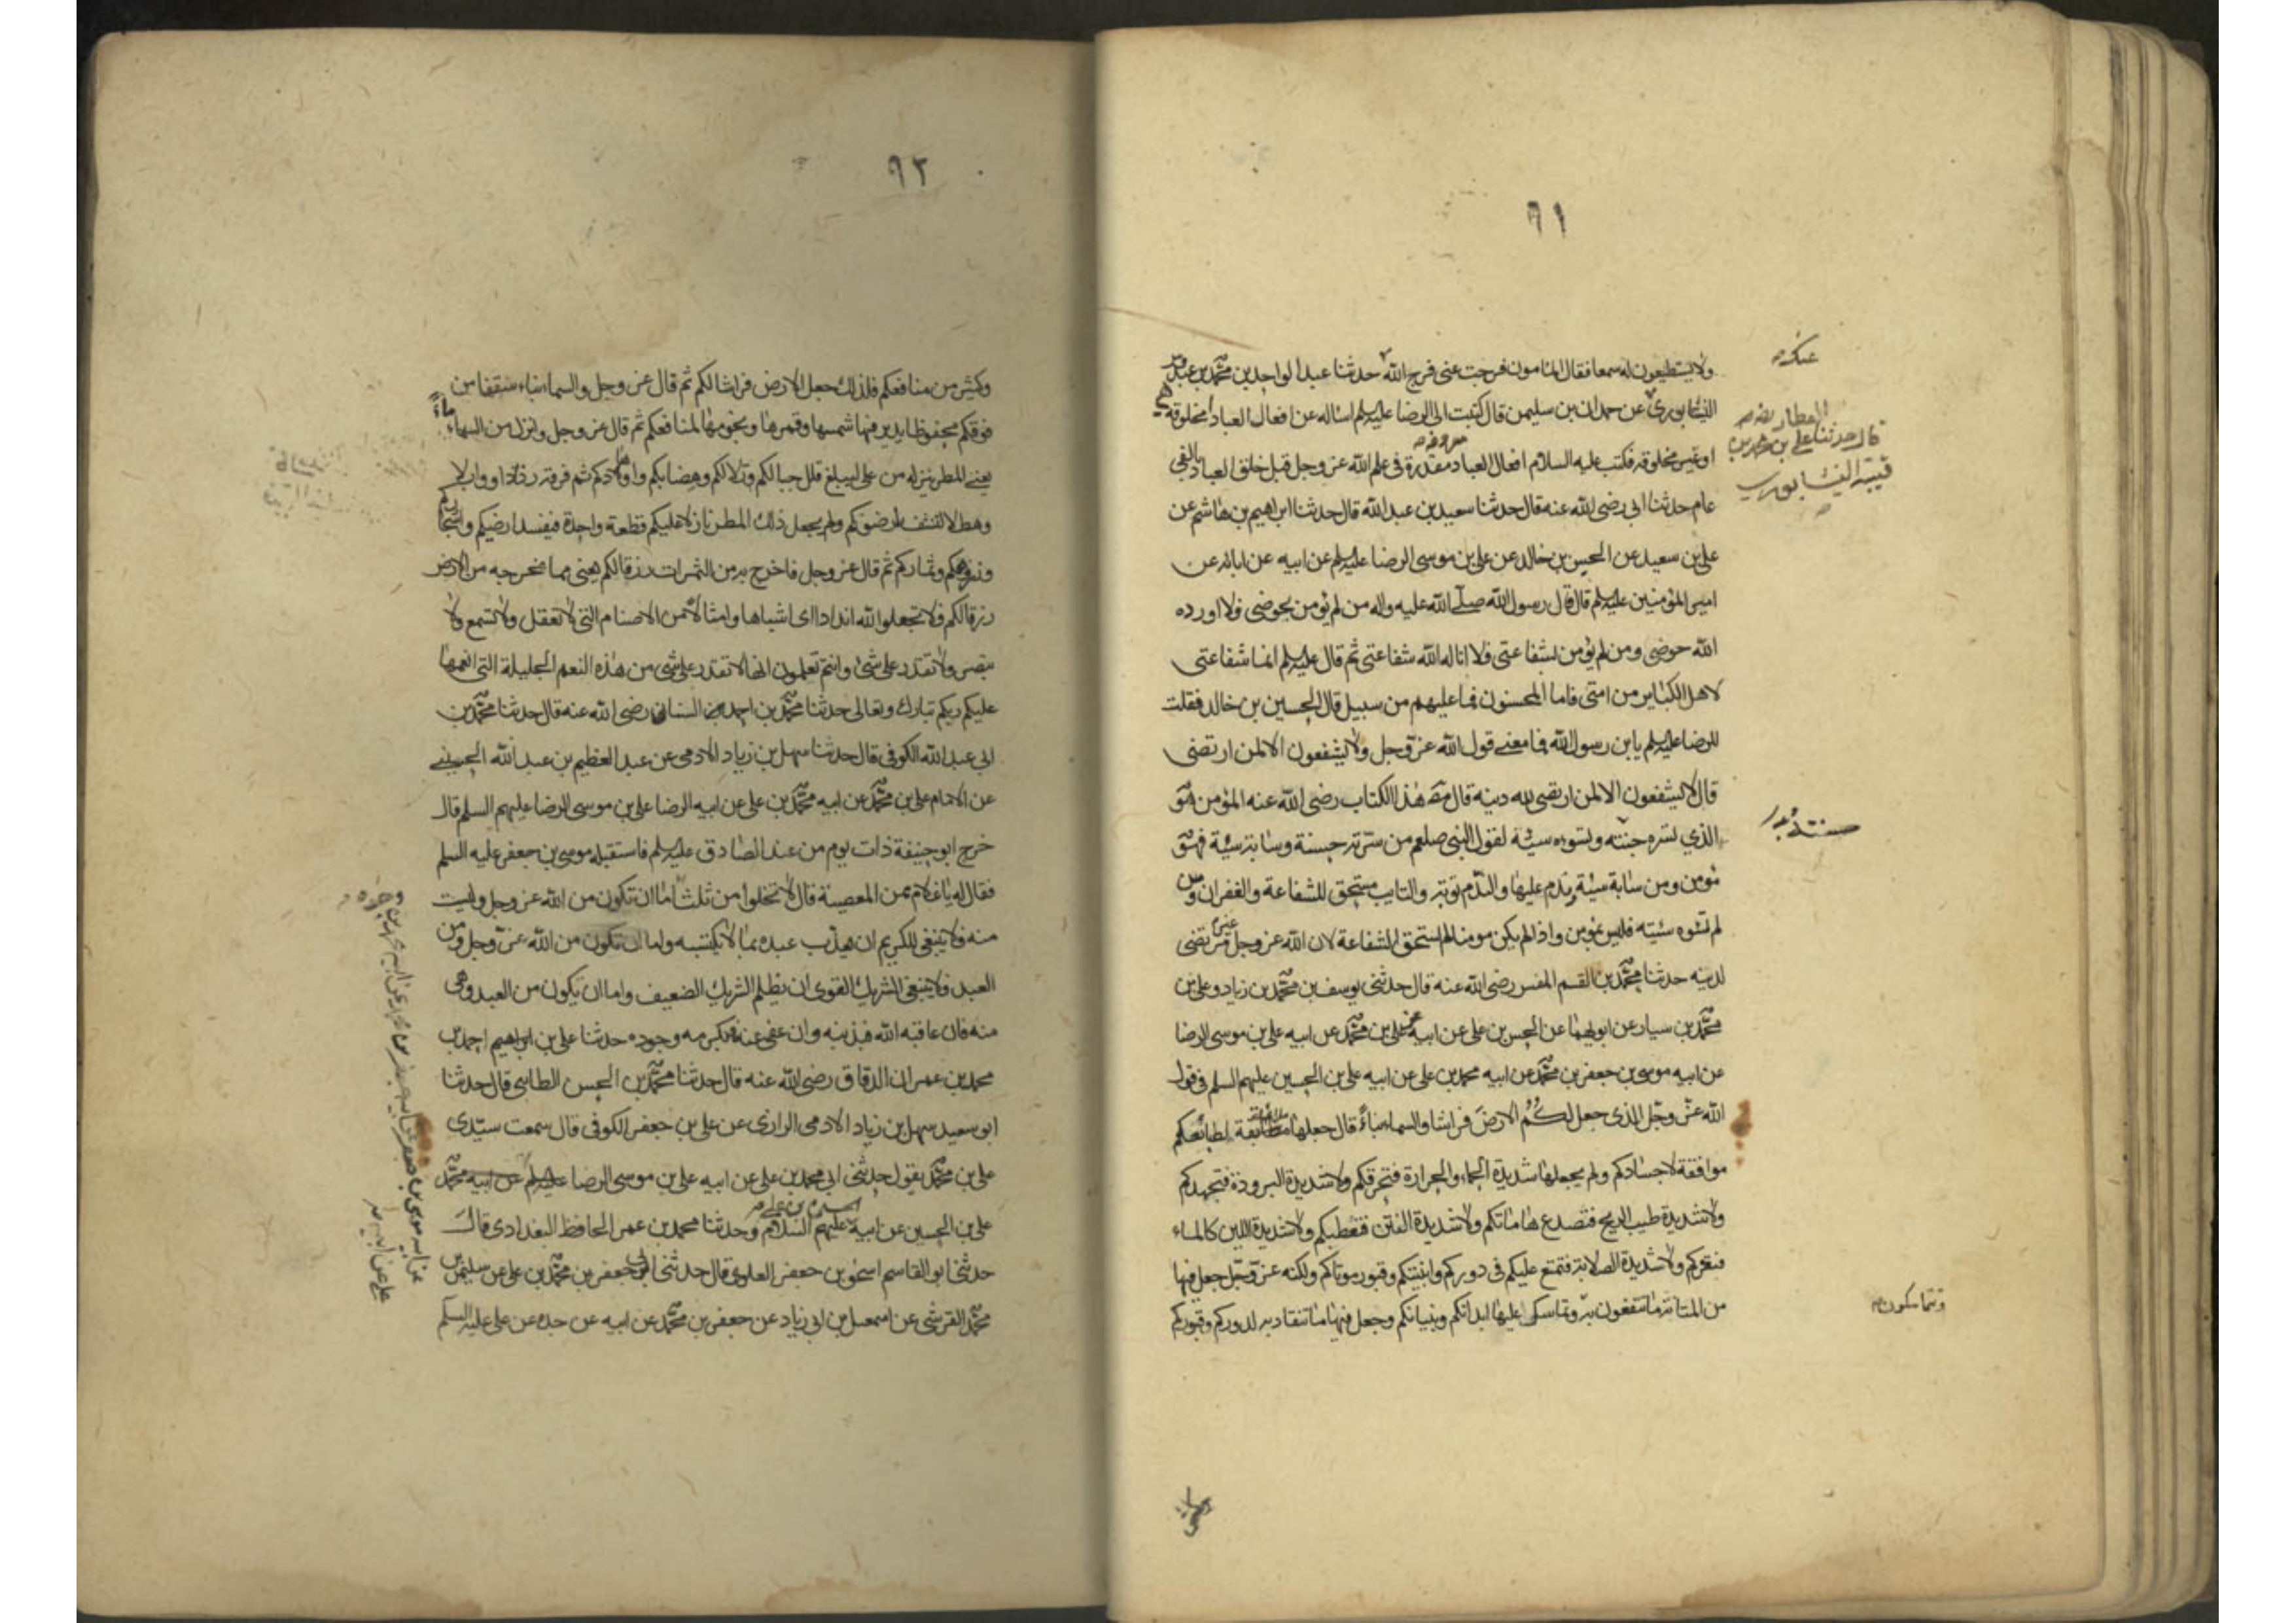 ٩١
ولا يستطيعون له سمعا فقال المامون فرجت عنى فرج الله حدثنا عبد الواحد بن محمد بن عبدوس
النيسابورى عن حمدان بن سليمن قال كتبت الى الرضا عليه‌السلم اساله عن افعال العباد مخلوقة هى
او غير مخلوقه فكتب عليه السلام افعال العباد مقدرة فى علم الله عز وجل قبل خلق العباد بالفى
عام حدثنا ابى رضى الله عنه قال حدثنا سعيد بن عبد الله قال حدثنا ابراهيم بن هاشم عن
على بن سعيد عن الحسين بن خالد عن على بن موسى الرضا عليه‌السلم عن ابيه عن ابائه عن
امير المؤمنين عليه‌السلم قال قال رسول الله صلى الله عليه واله من لم يؤمن بحوضى فلا اورده
الله حوضى ومن لم يؤمن بشفاعتى فلا اناله الله شفاعتى ثم قال عليه‌السلم انما شفاعتى
لاهل الكباير من امتى فاما المحسنون فما عليهم من سبيل قال الحسين بن خالد فقلت
للرضا عليه‌السلم يابن رسول الله فما معنى قول الله عز وجل ولا يشفعون الا لمن ارتضى
قال لا يشفعون الا لمن ارتضى الله دينه قال مصـ هذا الكتاب رضى الله عنه المؤمن هو
الذي تسره حسنته وتسوءه سيئة لقول النبى صلعم من سرته حسنة وسائته سيئة فهو
مؤمن ومن سائته سيئة يندم عليها والندم توبة والتايب مستحق للشفاعة والغفران ومن
لم تسوه سيئته فليس بمؤمن واذا لم يكن مومنا لم يستحق الشفاعة لان الله عز وجل غير مرتضى
لدينه حدثنا محمد بن القسم المفسر رضى الله عنه قال حدثنى يوسف بن محمد بن زياد وعلى بن
محمد بن سيار عن ابويهما عن الحسن بن على عن ابيه على بن محمد عن ابيه على بن موسى الرضا
عن ابيه موسى بن جعفر بن محمد عن ابيه محمد بن على عن ابيه على بن الحسين عليهم السلم فى قول
الله عز وجل الذى جعل لكم الارض فراشا والسماء بناءً قال جعلها ملائمة لطبائعكم
موافقة لاجسادكم ولم يجعلها شديدة الحماء والحرارة فتحرقكم ولا شديدة البرودة فتجمدكم
ولا شديدة طيب الريح فتصدع هاماتكم ولا شديدة النتن فتعطبكم ولا شديدة اللين كالماء
فتغرقكم ولا شديدة الصلابة فتمتنع عليكم فى دوركم وابنيتكم وقبور موتاكم ولكنه عز وجل جعل فيها
من المتانة ما تنتفعون به وتماسك عليها ابدانكم وبنيانكم وجعل فيها ما تنقاد به لدوركم وقبوركم
العطار رضه
قال حدثنا على بن محمد بن
قتيبة النيسابورى
وتتماسكون
٩٢
وكثير من منافعكم فلذلك جعل الارض فراشا لكم ثم قال عز وجل والسماء بناء سقفا من
فوقكم محفوظا يدير فيها شمسها وقمرها ونجومها لمنافعكم ثم قال عز وجل وانزل من السماء ماءً
يعنى المطر ينزله من على ليبلغ قلل جبالكم وتلالكم وهضابكم واوهادكم ثم فرقه رذاذا ووابلا
وهطلا لتنشفه ارضوكم ولم يجعل ذلك المطر نازلا عليكم قطعة واحدة فيفسد ارضيكم واشجاركم
وزروعكم وثماركم ثم قال عز وجل فاخرج به من الثمرات رزقا لكم يعنى مما يخرجه من الارض
رزقا لكم فلا تجعلوا لله اندادا اى اشباها وامثالا من الاصنام التى لا تعقل ولا تسمع ولا
تبصر ولا تقدر على شئ وانتم تعلمون انها لا تقدر على شى من هذه النعم الجليلة التى انعمها
عليكم ربكم تبارك وتعالى حدثنا محمد بن احمد السنانى رضى الله عنه قال حدثنا محمد بن
ابى عبد الله الكوفى قال حدثنا سهل بن زياد الادمى عن عبد العظيم بن عبد الله الحسينى
عن الامام على بن محمد عن ابيه محمد بن على عن ابيه الرضا على بن موسى الرضا عليهم السلم قال
خرج ابو حنيفة ذات يوم من عند الصادق عليه‌السلم فاستقبله موسى بن جعفر عليه السلم
فقال له يا غلام ممن المعصية قال لا تخلوا من ثلث اما ان تكون من الله عز وجل وليست
منه فلا ينبغى للكريم ان يعذب عبده بما لا يكتسبه واما ان تكون من الله عز وجل ومن
العبد فلا ينبغى للشريك القوى ان يظلم الشريك الضعيف واما ان تكون من العبد وهى
منه فان عاقبه الله فبذنبه وان عفى عنه فبكرمه وجوده حدثنا على بن ابراهيم احمد بن
محمد بن عمران الدقاق رضى الله عنه قال حدثنا محمد بن الحسن الطائى قال حدثنا
ابو سعيد سهل بن زياد الادمى الرازى عن على بن جعفر الكوفى قال سمعت سيدى
على بن محمد يقول حدثنى ابى محمد بن على عن ابيه على بن موسى الرضا عليه‌السلم عن ابيه محمد
على بن الحسين عن ابيه الحسين بن على عليهم السلام وحدثنا محمد بن عمر الحافظ البغدادى قال
حدثنى ابو القاسم اسحق بن جعفر العلوى قال حدثنى ابى جعفر بن محمد بن على عن سليمن بن
محمد القرشى عن اسمعيل بن ابى زياد عن جعفر بن محمد عن ابيه عن جده عن على عليه السلم
عن ابيه موسى بن جعفر عن ابيه جعفر بن محمد عن ابيه محمد بن
على عن ابيه